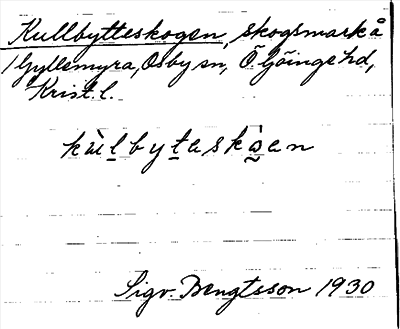 Kullbytteskogen, skogsmark å
1 Gyllsmyra, Osby sn, Ö. Göinge hd,
Krist. l.
kùlbytaskògan
Sigv. Bengtsson 1930